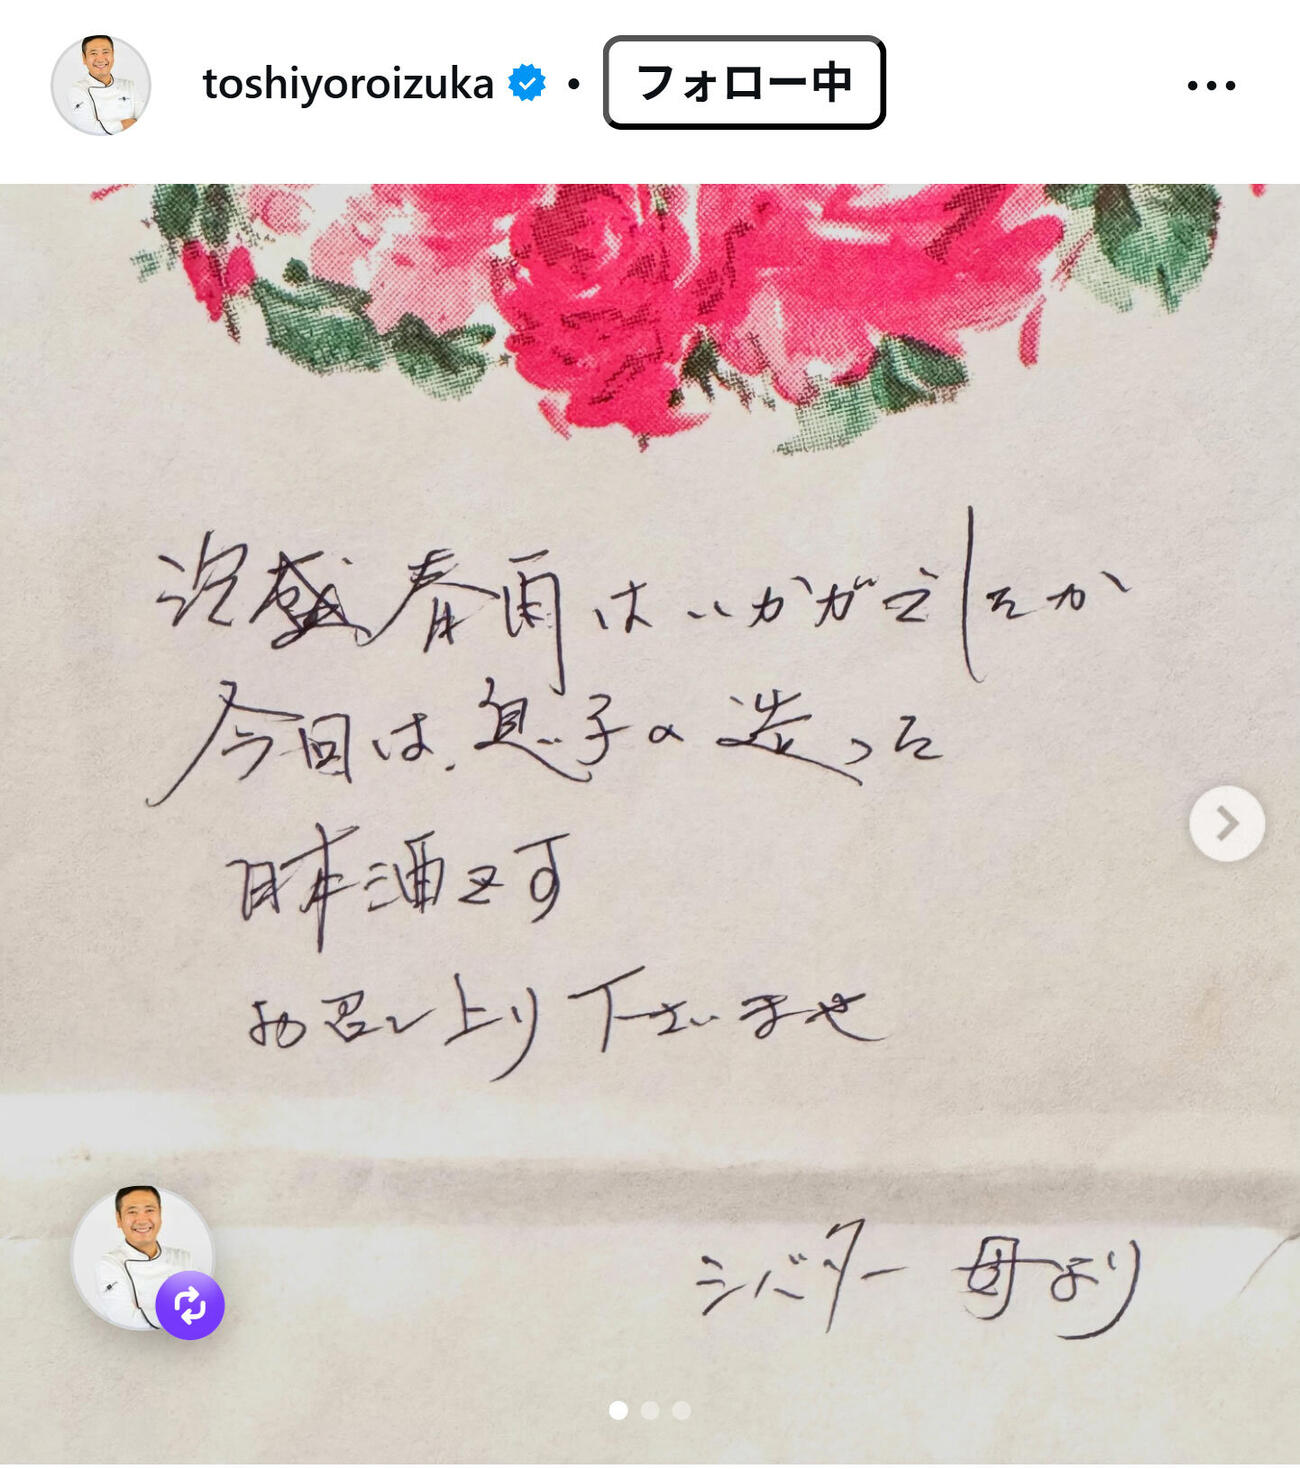 toshiyoroizuka • フォロー中
泡盛春雨はいかがでしたか
今日は、息子の造った
日本酒です
お召し上り下さいませ
シバター 母より